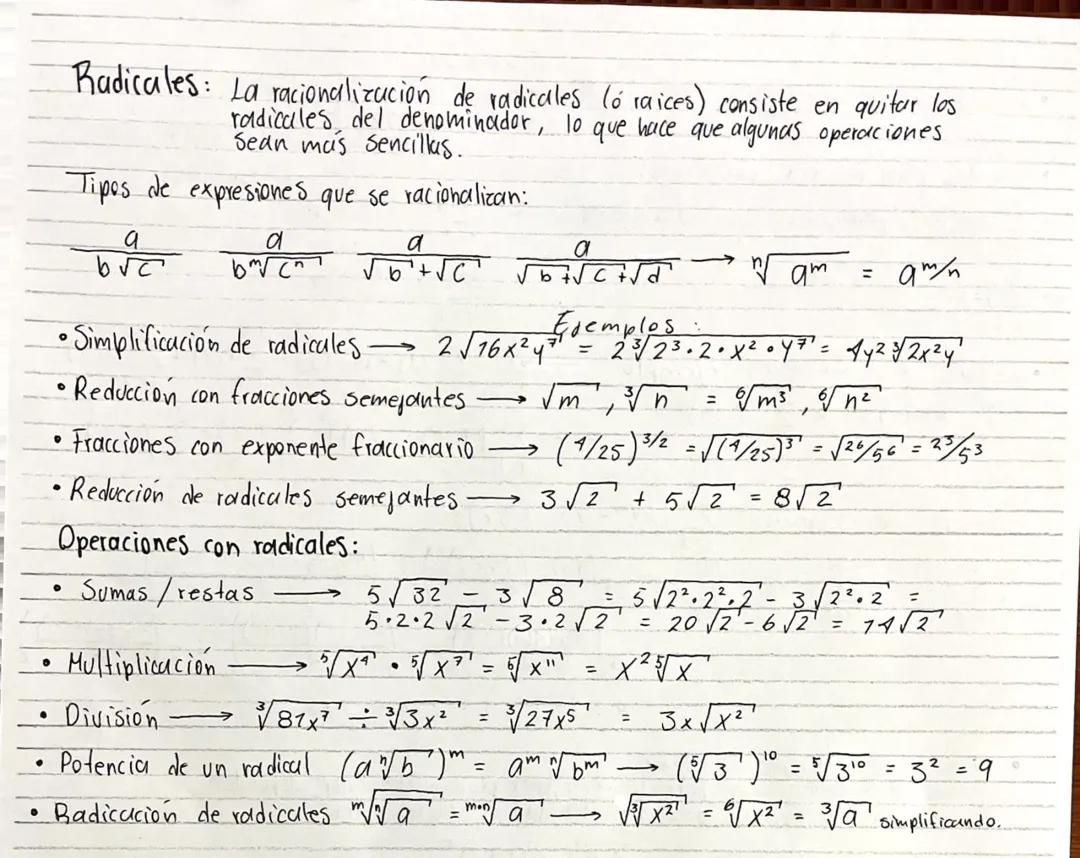 Radicales: La racionalización de radicales (ó raices) consiste en quitar los
radicales del denominador, lo que hace que algunas operaciones
sean más sencillas.
Tipos de expresiones que se racionalizan:
a/(b√c)   a/(b ᵐ√(cⁿ))   a/(√b+√c)   a/(√b+√c+√d) → ⁿ√(aᵐ) = a^(m/n)
Ejemplos:
• Simplificación de radicales → 2√(16x²y⁷) = 2 ³√(2³·2·x²·y⁷) = 4y² ³√(2x²y)
• Reducción con fracciones semejantes → √m, ³√n = ⁶√(m³), ⁶√(n²)
• Fracciones con exponente fraccionario → (4/25)^(3/2) = √((4/25)³) = √(2⁶/5⁶) = 2³/5³
• Reducción de radicales semejantes → 3√2 + 5√2 = 8√2
Operaciones con radicales:
• Sumas/restas → 5√32 - 3√8 = 5√(2²·2²·2) - 3√(2²·2) =
5·2·2√2 - 3·2√2 = 20√2 - 6√2 = 14√2
• Multiplicación → ⁵√(x⁴) · ⁵√(x⁷) = ⁵√(x¹¹) = x² ⁵√x
• División → ³√(81x⁷) ÷ ³√(3x²) = ³√(27x⁵) = 3x√(x²)
• Potencia de un radical (a ⁿ√b)ᵐ = aᵐ ⁿ√(bᵐ) → (⁵√3)¹⁰ = ⁵√(3¹⁰) = 3² = 9
• Radicación de radicales ᵐ√(ⁿ√a) = ᵐ·ⁿ√a → √(³√(x²)) = ⁶√(x²) = ³√a simplificando.